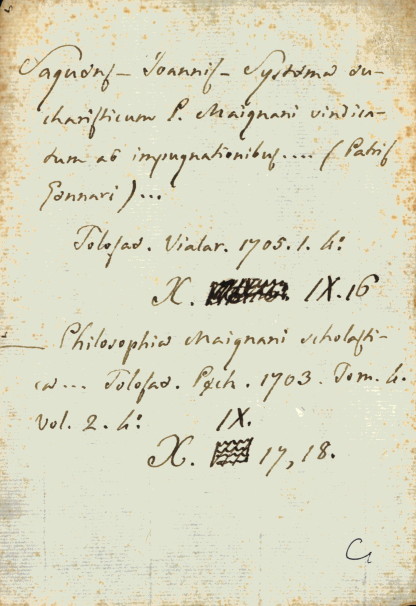 Saguens – Joannis – Systema eu-
charisticum P. Maignani vindica-
tum ab impugnationibus .... (Patris
Gennari) ...
Tolosae. Vialar. 1705. 1. 4º
X. IX. 16
— Philosophia Maignani scholasti-
ca ... Tolosae. Pech. 1703. Tom. 4.
vol. 2. 4º IX.
X. 17, 18.